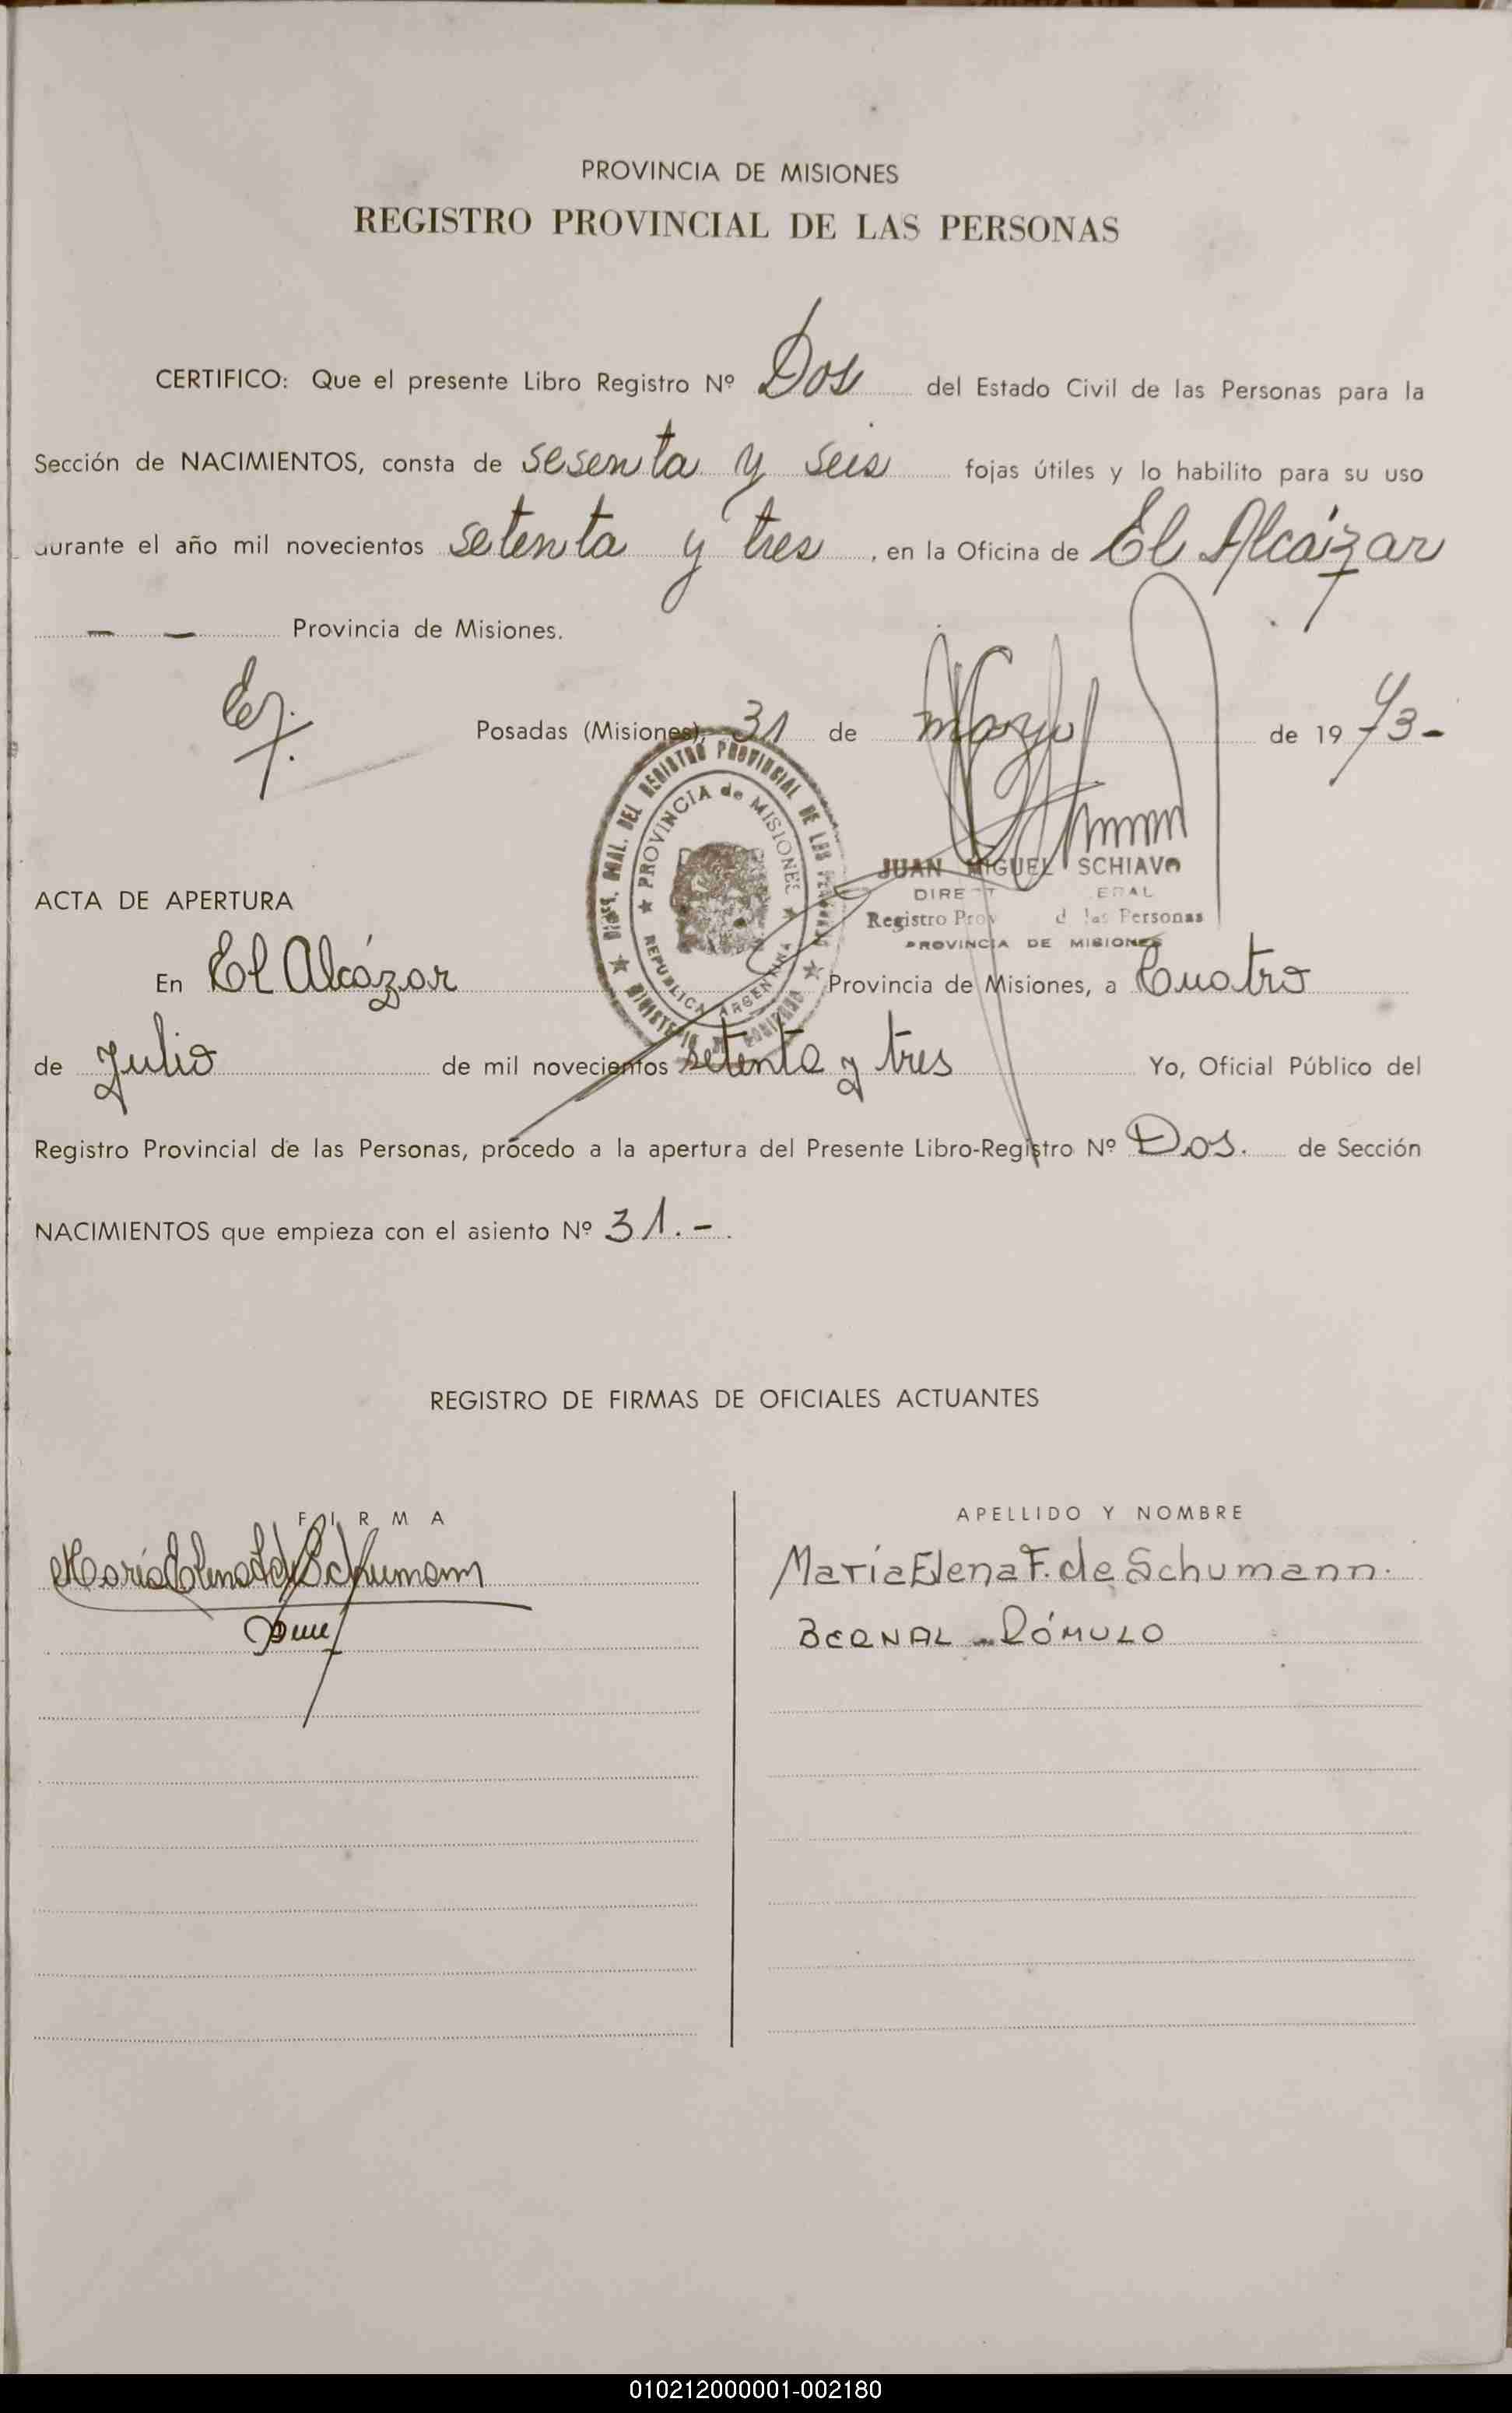 PROVINCIA DE MISIONES
REGISTRO PROVINCIAL DE LAS PERSONAS
CERTIFICO: Que el presente Libro Registro Nº Dos del Estado Civil de las Personas para la
Sección de NACIMIENTOS, consta de sesenta y seis fojas útiles y lo habilito para su uso
durante el año mil novecientos setenta y tres, en la Oficina de El Alcázar
— — Provincia de Misiones.
Posadas (Misiones), 31 de mayo de 1973-
PROVINCIA de MISIONES
REPUBLICA ARGENTINA
JUAN MIGUEL SCHIAVO
Registro Prov d las Personas
PROVINCIA DE MISIONES
ACTA DE APERTURA
En El Alcázar Provincia de Misiones, a Cuatro
de Julio de mil novecientos setenta y tres Yo, Oficial Público del
Registro Provincial de las Personas, procedo a la apertura del Presente Libro-Registro Nº Dos. de Sección
NACIMIENTOS que empieza con el asiento Nº 31.-.
REGISTRO DE FIRMAS DE OFICIALES ACTUANTES
FIRMA
APELLIDO Y NOMBRE
María Elena F. de Schumann
María Elena F. de Schumann.
BERNAL - RÓMULO
010212000001-002180